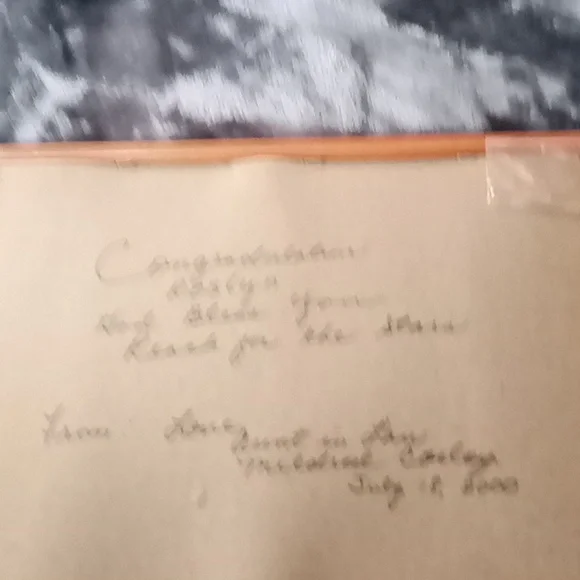 Congratulation
God Bless You
Reach for the Stars
From Love,
Aunt in Law
Mildred
July 18, 2000